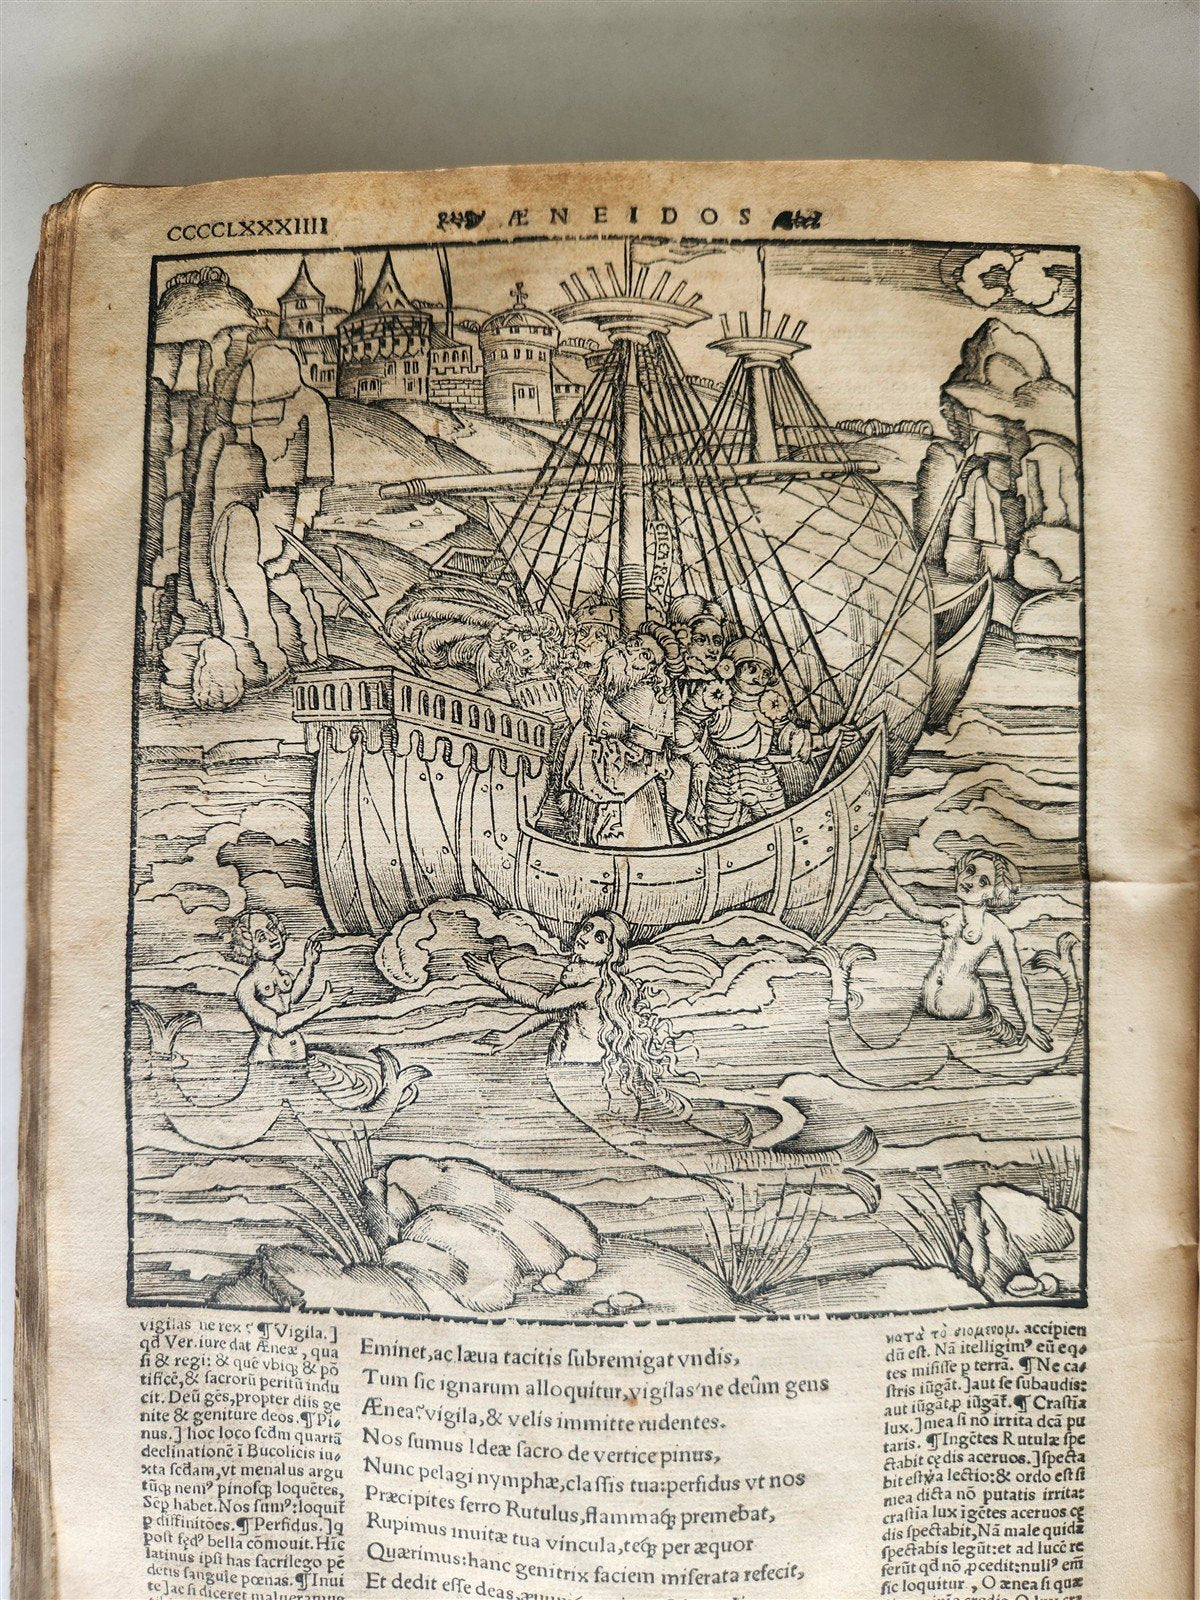 CCCCLXXXIIII
ÆNEIDOS
ENEA REX
vigilas ne rex? ¶ Vigila.]
qd Ver. iure dat Æneæ, qua
si & regi: & quē vbiq; & pō
tificē, & sacrorū peritū indu
cit. Deū gēs, propter diis ge
nite & geniture deos. ¶ Pi-
nus.] hoc loco scđm quartā
declinationē ī Bucolicis iu-
xta scđam, vt menalus argu
tūq; nemꝰ pinosq; loquētes,
Sēp habet. Nos sumꝰ: loquit̄
ꝑ diffinitōes. ¶ Perfidus.] q
post fędꝰ bella cōmouit. Hīc
latinus ipsi has sacrilego pē
detis sanguīe pœnas. ¶ Inui
te] ac si diceret malueramus
Eminet, ac læua tacitis subremigat vndis,
Tum sic ignarum alloquitur, vigilas'ne deûm gens
Ænea? vigila, & velis immitte rudentes.
Nos sumus Ideæ sacro de vertice pinus,
Nunc pelagi nymphæ, classis tua: perfidus vt nos
Præcipites ferro Rutulus, flammaq; premebat,
Rupimus inuitæ tua vincula, teq; per æquor
Quærimus: hanc genitrix faciem miserata refecit,
Et dedit esse deas,
κατὰ τὸ σιομενομ. accipien
dū est. Nā itelligimꝰ eū eq-
tes misisse ꝑ terrā. ¶ Ne ca-
stris iūgāt.] aut se subaudis:
aut iūgāt, ꝑ iūgāt̄. ¶ Crastīa
lux.] mea si nō irrita dc̄ā pu
taris. ¶ Ingētes Rutulæ spe
ctabit cędis aceruos.] specta
bit est ỹa lectio: & ordo est si
mea dicta nō putatis irrita:
crastīa lux īgētes aceruos cę
dis spectabit, Nā male quidā
spectabis legūt: et ad lucē re
ferūt qđ nō ꝓcedit: nullꝰ em̄
sic loquitur, O ænea si quæ